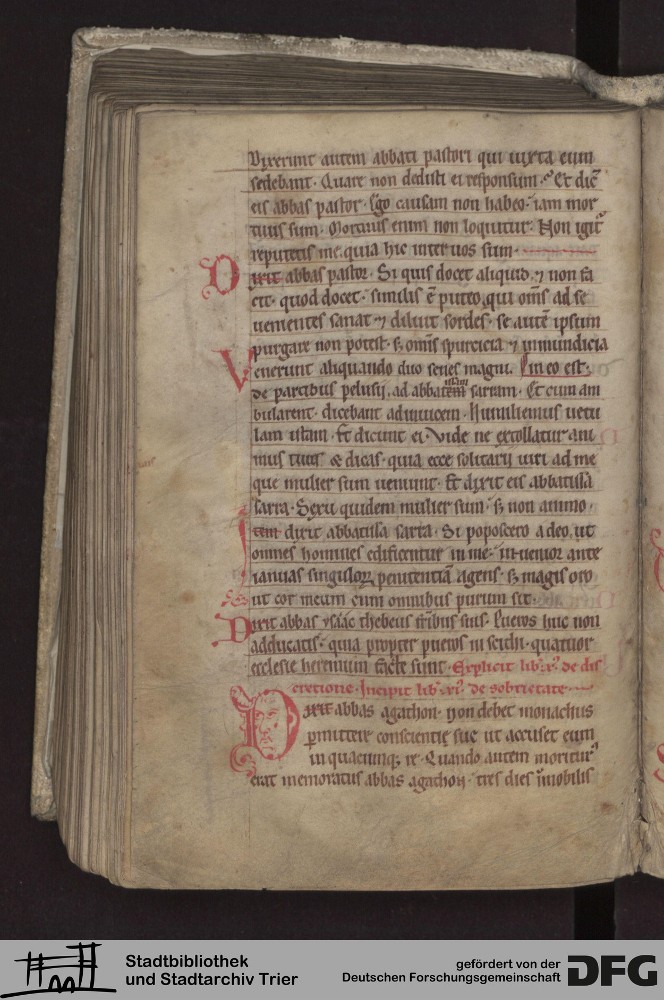 Dixerunt autem abbati pastori qui iuxta eum
sedebant. Quare non dedisti ei responsum. Et dic̄
eis abbas pastor. Ego causam non habeo. iam mor
tuus sum. Mortuus enim non loquitur. Non igit᷑
reputetis me. quia hic inter uos sum.
Dixit abbas pastor. Si quis docet aliquid. ⁊ non fa
cit. quod docet. similis ē puteo. qui om̄s ad se
uenientes sanat ⁊ diluit sordes. se autē ipsum
purgare non potest. s; om̄is spurcicia ⁊ inmundicia
Venerunt aliquando duo senes magni. in eo est.
de partibus pelusij. ad abbatem sarram. Et cum am
bularent. dicebant adinuicem. Humiliemus uetu
lam istam. Et dicunt ei. Vide ne extollatur ani
mus tuus & dicas. quia ecce solitarij uiri ad me
que mulier sum ueniunt. Et dixit eis abbatissa
sarra. Sexu quidem mulier sum. s; non animo.
Item dixit abbatissa sarra. Si poposcero a deo. ut
omnes homines edificentur in me. inuenior ante
ianuas singuloꝝ penitentiā agens. s; magis oro
ut cor meum cum omnibus purum sit.
Dixit abbas ysaac thebeus fr̄ibus suis. Pueros huc non
adducatis. quia propter pueros in scithi. quatuor
ecclesie heremum fact̄e sunt. Explicit lib. x. de dis
cretione. Incipit lib. xi. de sobrietate.
Dixit abbas agathon. non debet monachus
ꝑmittere conscientie sue ut accuset eum
in quacunq; re. Quando autem moritur᷑
erat memoratus abbas agathon. tres dies īmobilis
Stadtbibliothek
und Stadtarchiv Trier
gefördert von der
Deutschen Forschungsgemeinschaft
DFG